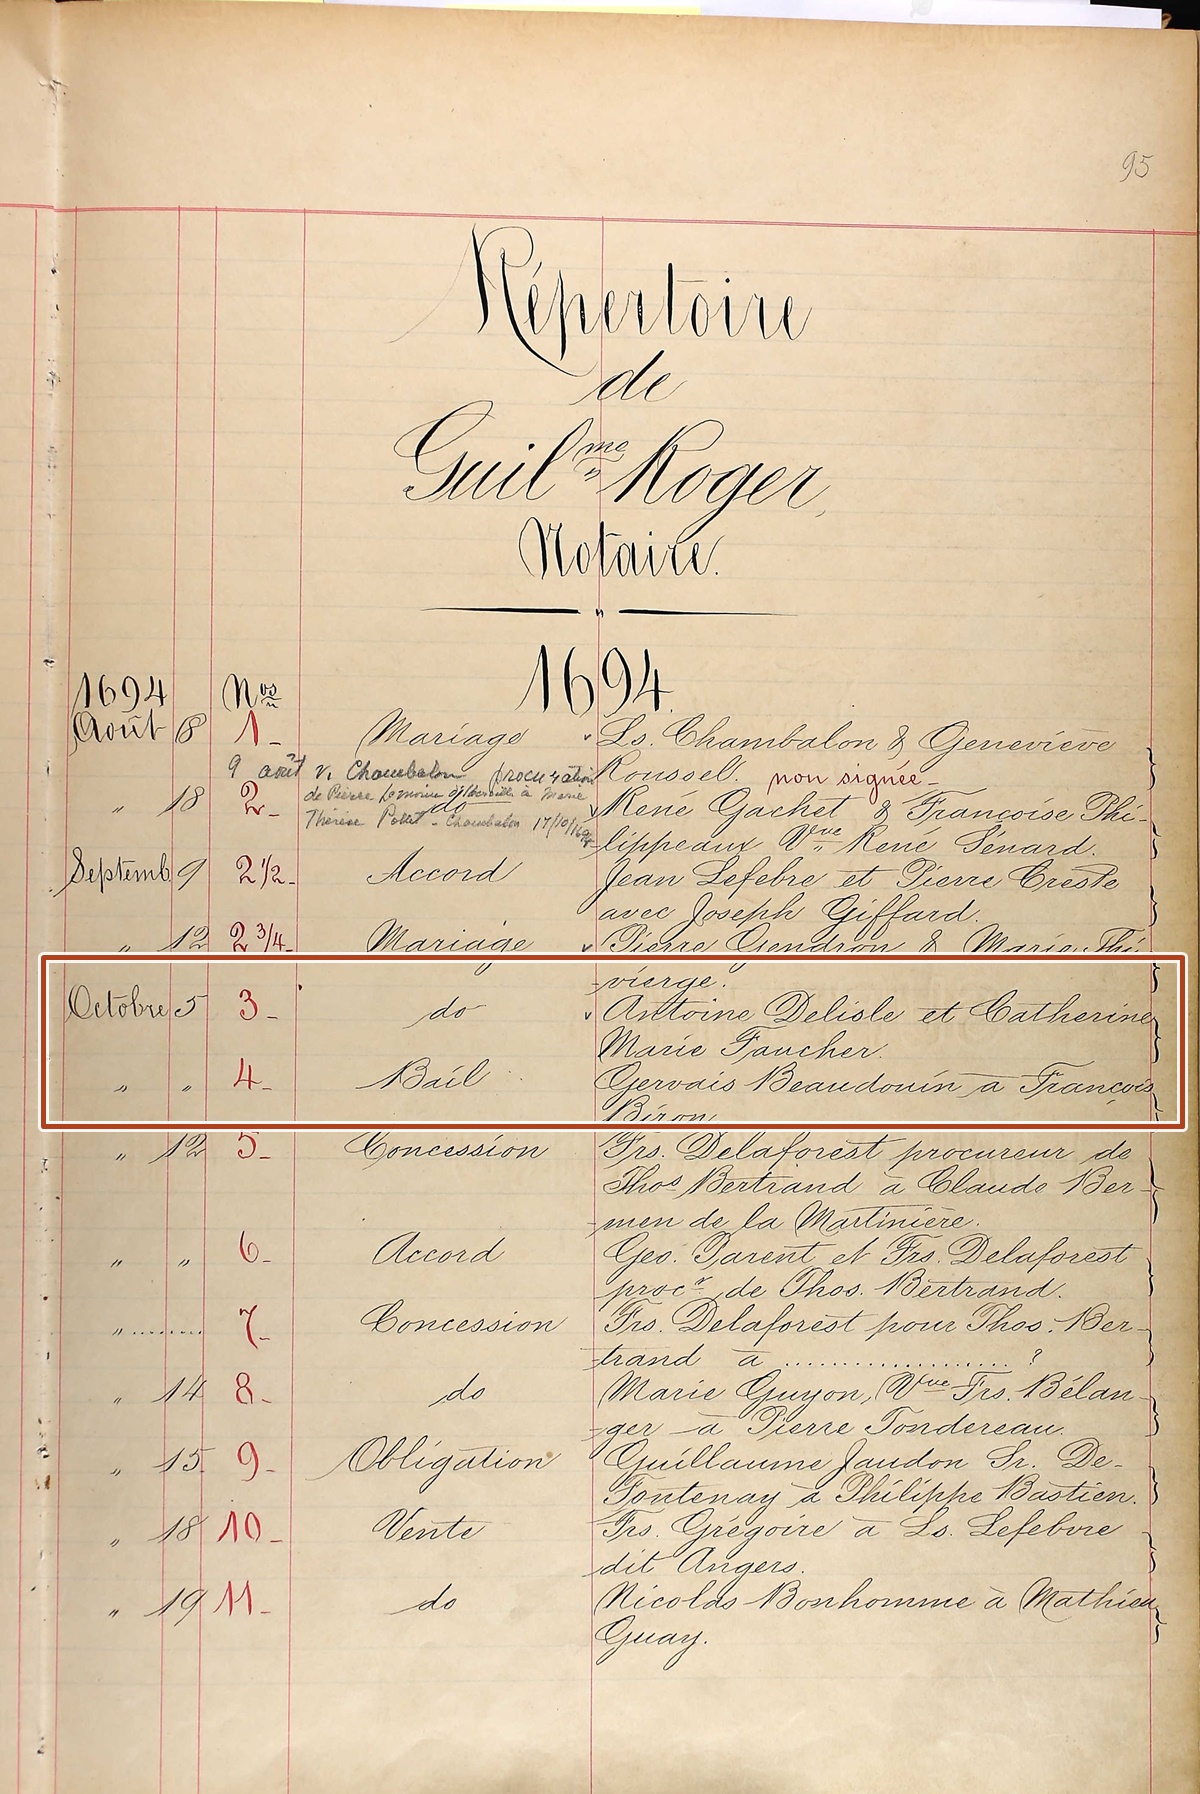 95
Répertoire
de
Guil^me Roger,
Notaire.
1694
1694 N^os
Août 8 1_ Mariage v Ls. Chambalon & Geneviève
9 août v. Chambalon procuration Roussel. non signée_
de Pierre Lemoine d'Iberville à Marie
" 18 2_ do v René Gachet & Françoise Phi-
Thérèse Pollet _ Chambalon 17/10/1694
lippeaux V^ve René Sénard.
Septemb 9 2 1/2_ Accord Jean Lefebre et Pierre Creste
avec Joseph Giffard.
" 12 2 3/4_ Mariage v Pierre Gendron & Marie Thi-
vierge.
Octobre 5 3_ do v Antoine Delisle et Catherine
Marie Faucher.
" " 4_ Bail Gervais Beaudouin à François
Biron.
" 12 5_ Concession Frs. Delaforest procureur de
Thos Bertrand à Claude Ber-
men de la Martinière.
" " 6_ Accord Geo. Parent et Frs. Delaforest
proc^r de Thos. Bertrand.
" ......... 7_ Concession Frs. Delaforest pour Thos. Ber-
trand à ................... ?
" 14 8_ do Marie Guyon, V^ve Frs. Bélan-
ger à Pierre Tondereau.
" 15 9_ Obligation Guillaume Jaudon Sr. De-
Fontenay à Philippe Bastien.
" 18 10_ Vente Frs. Grégoire à Ls. Lefebvre
dit Angers.
" 19 11_ do Nicolas Bonhomme à Mathieu
Guay.